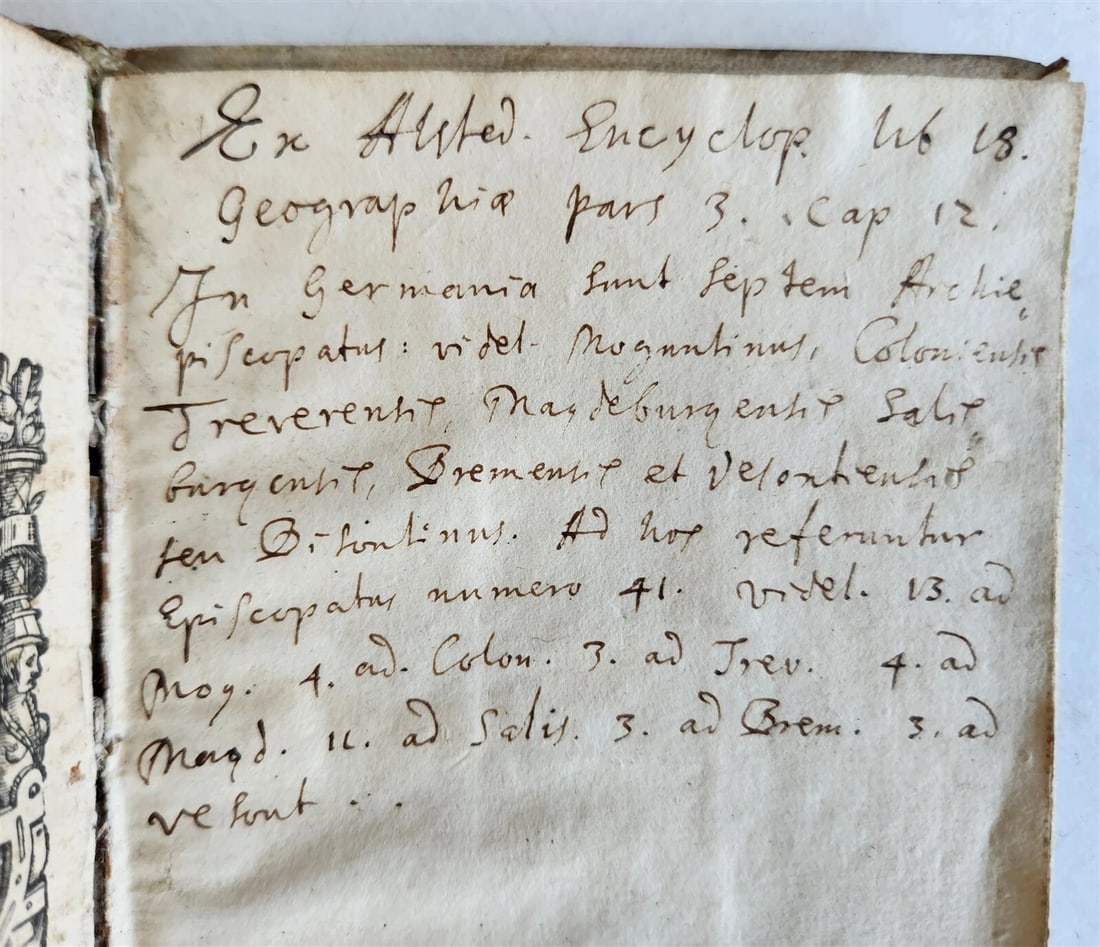 Ex Alsted. Encyclop. lib 18.
Geographiæ pars 3. Cap 12.
In Germania sunt septem Archie„
piscopatus: videl. Moguntinus, Coloniensis
Treverensis, Magdeburgensis Salis„
burgensis, Bremensis et Vesontiensis
seu Bisontinus. Ad hos referuntur
Episcopatus numero 41. videl. 13. ad
Mog. 4. ad. Colon. 3. ad Trev. 4. ad
Magd. 11. ad Salis. 3. ad Brem. 3. ad
vesont ...